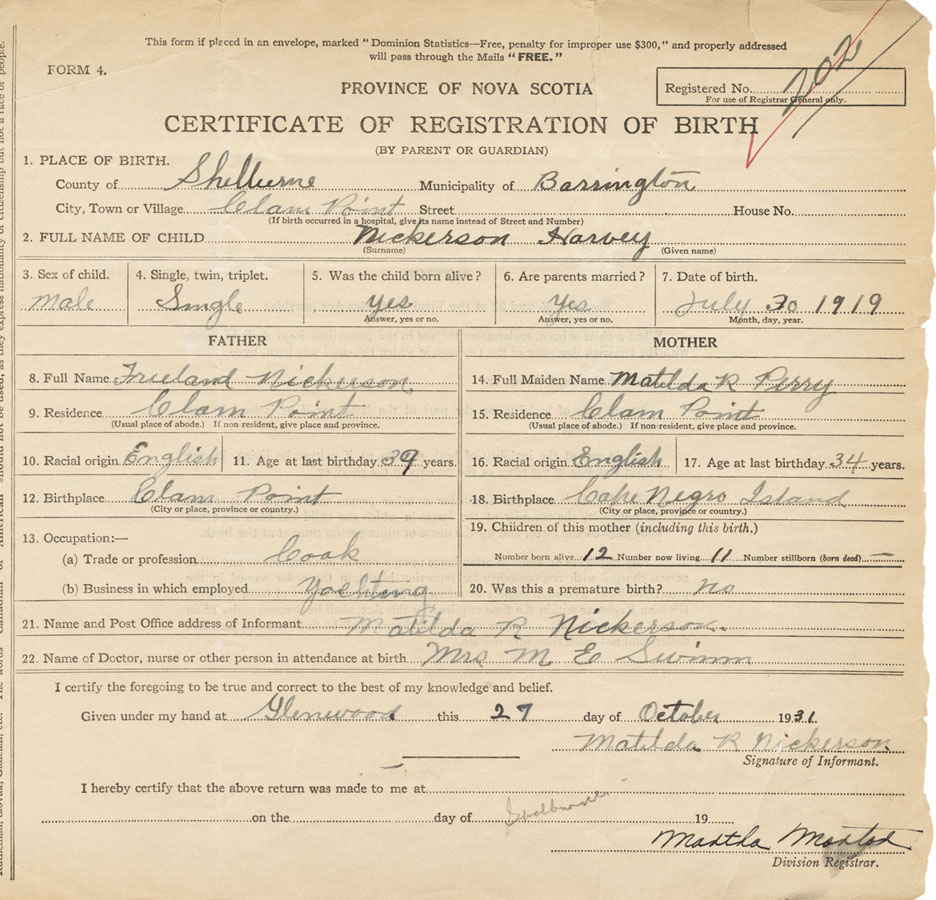 This form if placed in an envelope, marked "Dominion Statistics—Free, penalty for improper use $300," and properly addressed
will pass through the Mails "FREE."
FORM 4.
PROVINCE OF NOVA SCOTIA
Registered No. 202
For use of Registrar General only.
CERTIFICATE OF REGISTRATION OF BIRTH
(BY PARENT OR GUARDIAN)
1. PLACE OF BIRTH.
County of Shelburne Municipality of Barrington
City, Town or Village Clam Point Street House No.
(If birth occurred in a hospital, give its name instead of Street and Number)
2. FULL NAME OF CHILD Nickerson Harvey
(Surname) (Given name)
3. Sex of child. 4. Single, twin, triplet. 5. Was the child born alive? 6. Are parents married? 7. Date of birth.
Male Single Yes Yes July 30 1919
Answer, yes or no. Answer, yes or no. Month, day, year.
FATHER MOTHER
8. Full Name Freeland Nickerson 14. Full Maiden Name Matilda R Perry
9. Residence Clam Point 15. Residence Clam Point
(Usual place of abode.) If non resident, give place and province. (Usual place of abode.) If non-resident, give place and province.
10. Racial origin English 11. Age at last birthday 39 years. 16. Racial origin English 17. Age at last birthday 34 years.
12. Birthplace Clam Point 18. Birthplace Cape Negro Island
(City or place, province or country.) (City or place, province or country.)
13. Occupation:— 19. Children of this mother (including this birth.)
(a) Trade or profession Cook Number born alive 12 Number now living 11 Number stillborn (born dead) —
(b) Business in which employed Yachting 20. Was this a premature birth? no
21. Name and Post Office address of Informant Matilda R Nickerson.
22. Name of Doctor, nurse or other person in attendance at birth Mrs M E Swimm
I certify the foregoing to be true and correct to the best of my knowledge and belief.
Given under my hand at Glenwood this 27 day of October 1931.
Matilda R Nickerson
Signature of Informant.
I hereby certify that the above return was made to me at
on the day of Shelburne 19
Martha
Division Registrar.